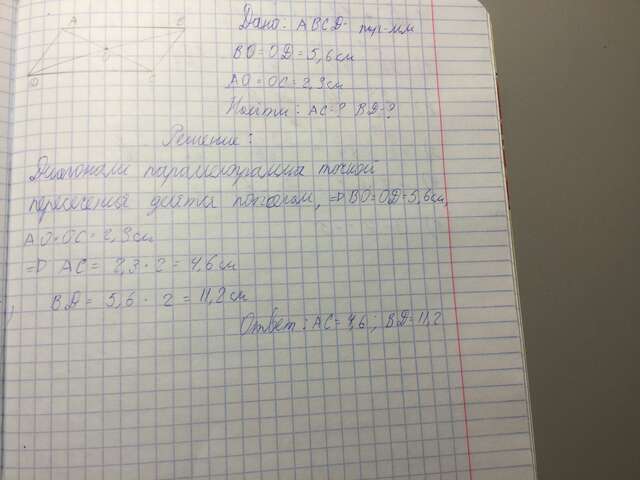 A B
O
D C
Дано: ABCD - пар-мм
BO=OD=5,6см
AO=OC=2,3см
Найти: AC-? BD-?
Решение:
Диагонали параллелограмма точкой
пересечения делятся пополам, => BO=OD=5,6см,
AO=OC=2,3см
=> AC= 2,3·2=4,6см
BD= 5,6 · 2 = 11,2см
Ответ: AC=4,6; BD=11,2